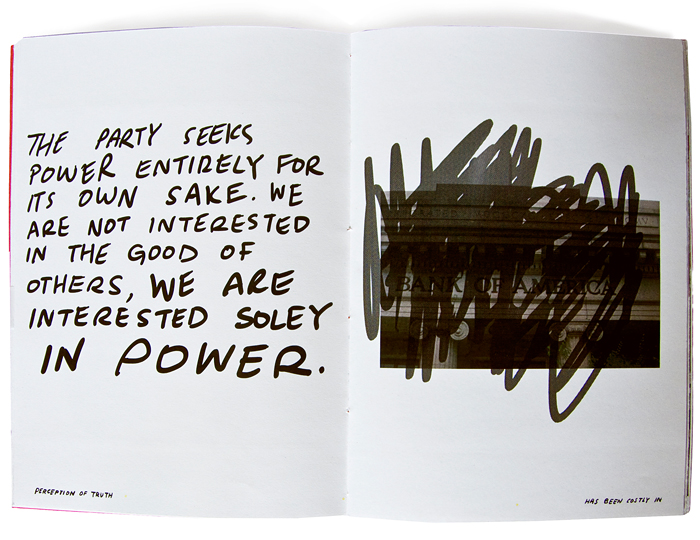 THE PARTY SEEKS
POWER ENTIRELY FOR
ITS OWN SAKE. WE
ARE NOT INTERESTED
IN THE GOOD OF
OTHERS, WE ARE
INTERESTED SOLEY
IN POWER.
PERCEPTION OF TRUTH
BANK OF AMERICA
HAS BEEN COSTLY IN